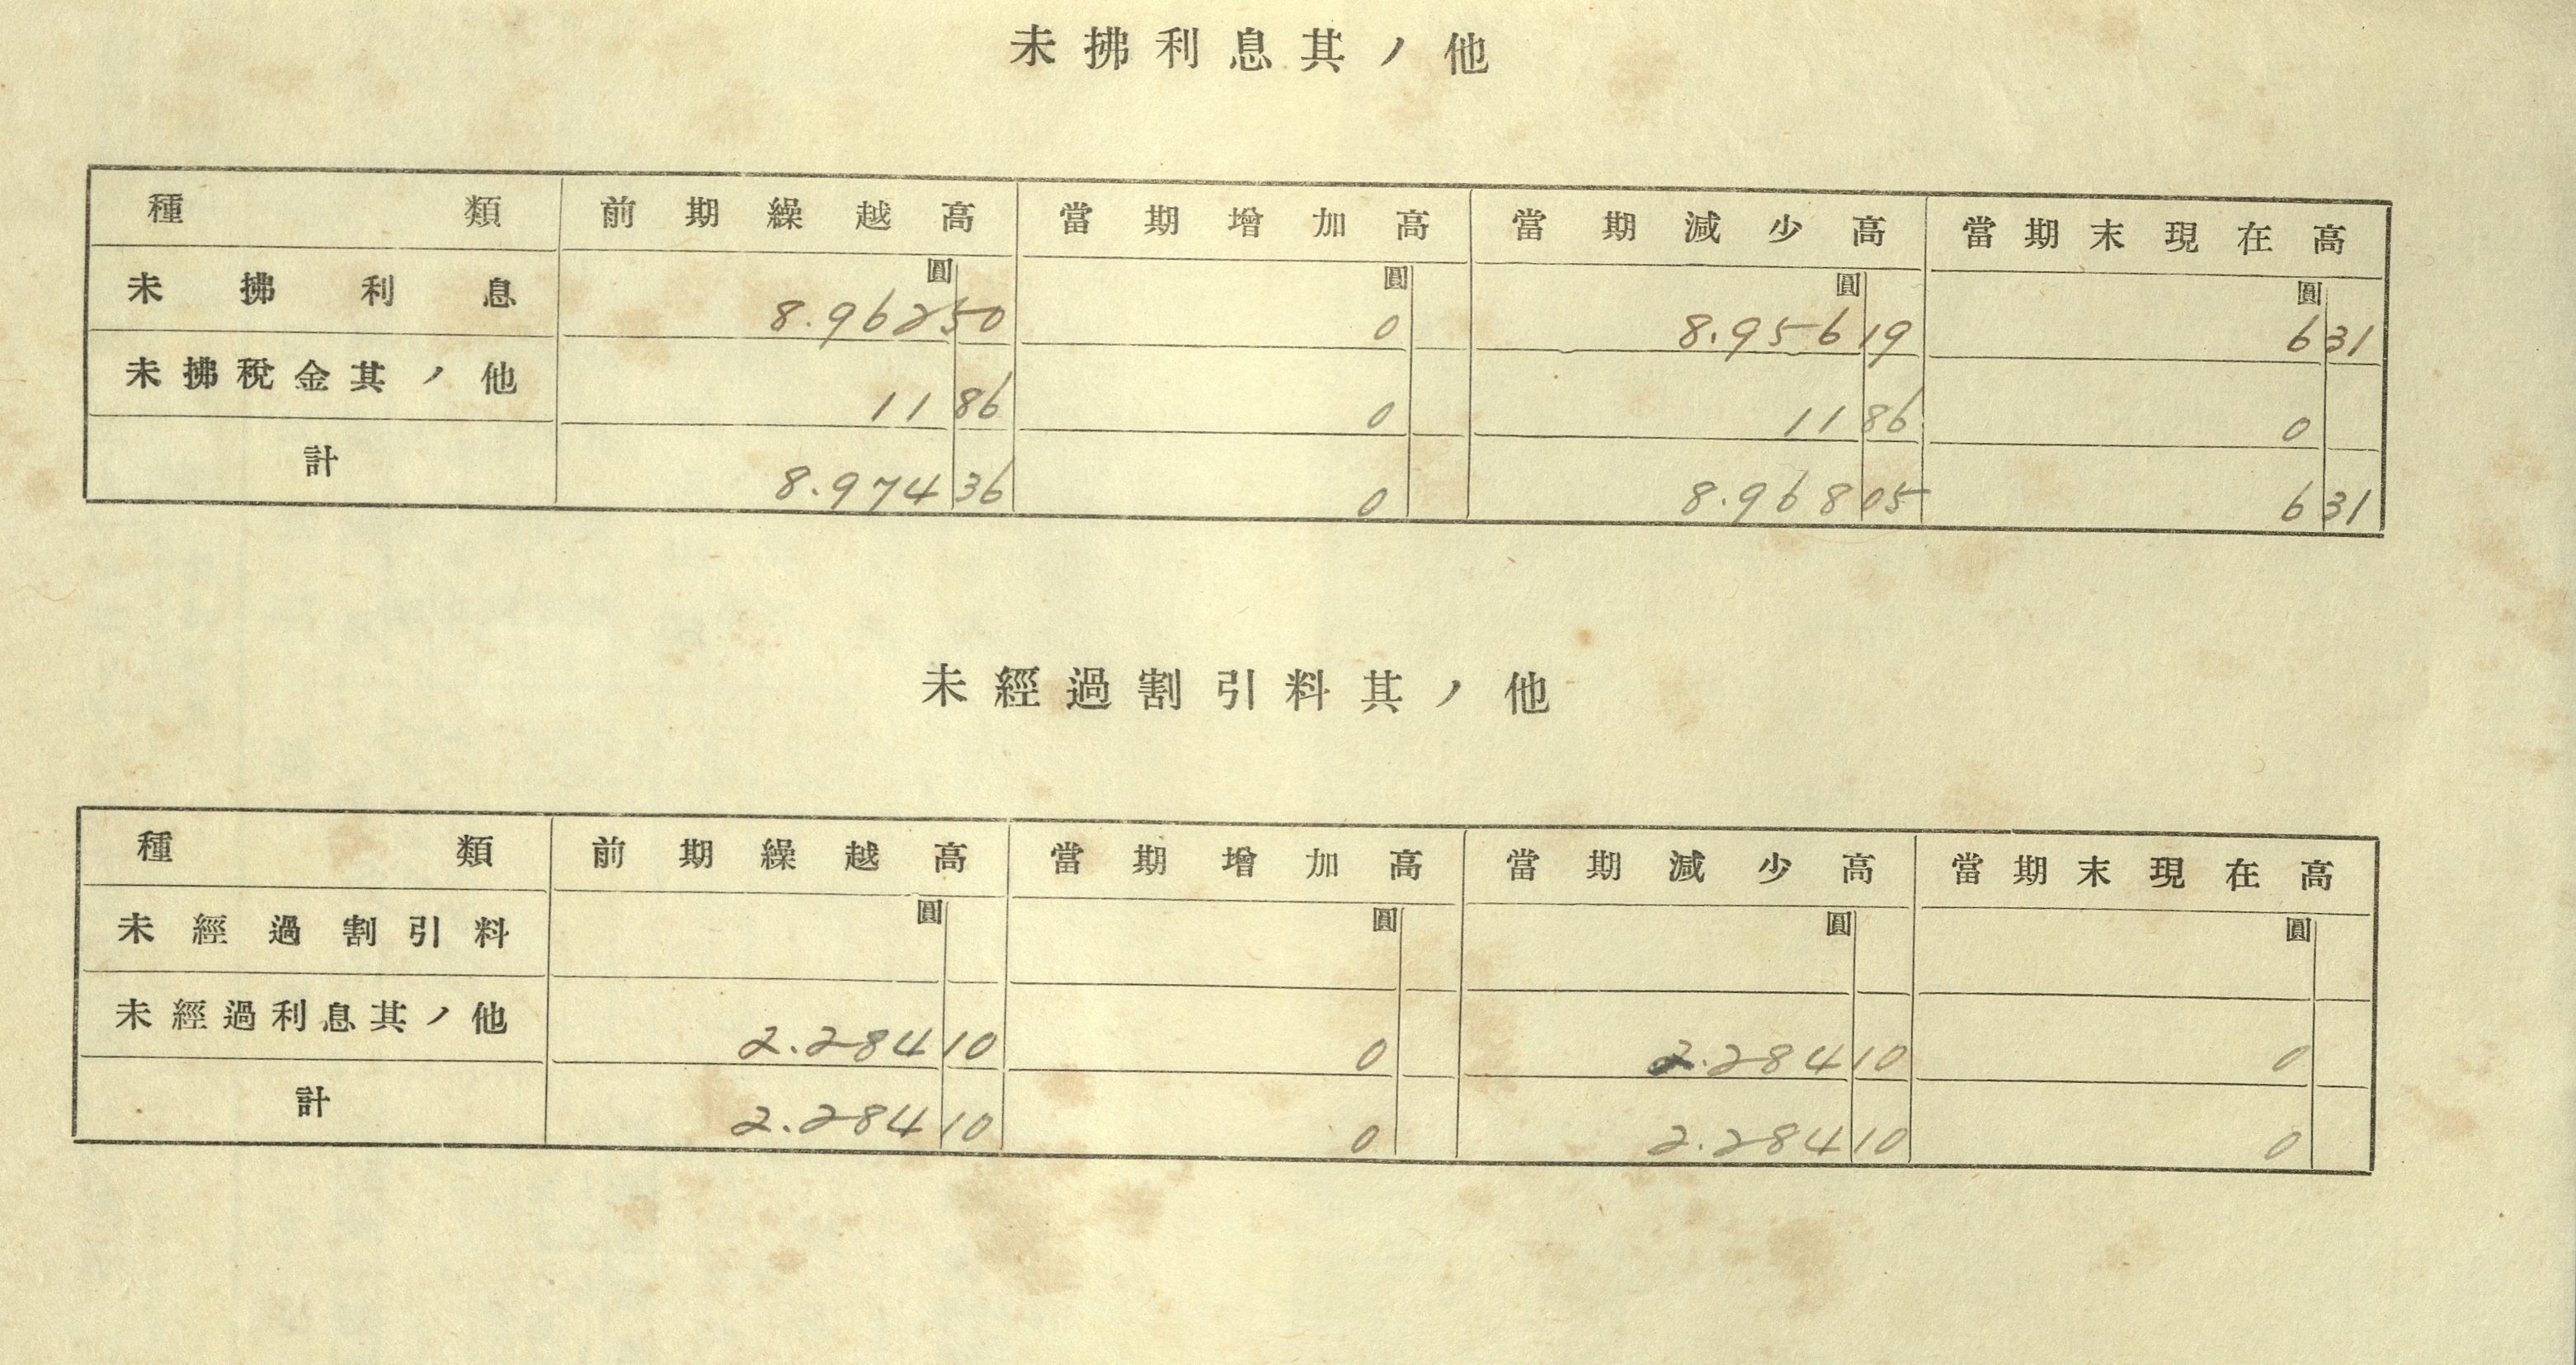 未拂利息其ノ他
種類 前期繰越高 當期增加高 當期減少高 當期末現在高
未拂利息 圓 8.962 50 圓 0 圓 8.956 19 圓 6 31
未拂稅金其ノ他 11 86 0 11 86 0
計 8.974 36 0 8.968 05 6 31
未經過割引料其ノ他
種類 前期繰越高 當期增加高 當期減少高 當期末現在高
未經過割引料 圓 圓 圓 圓
未經過利息其ノ他 2.284 10 0 2.284 10 0
計 2.284 10 0 2.284 10 0